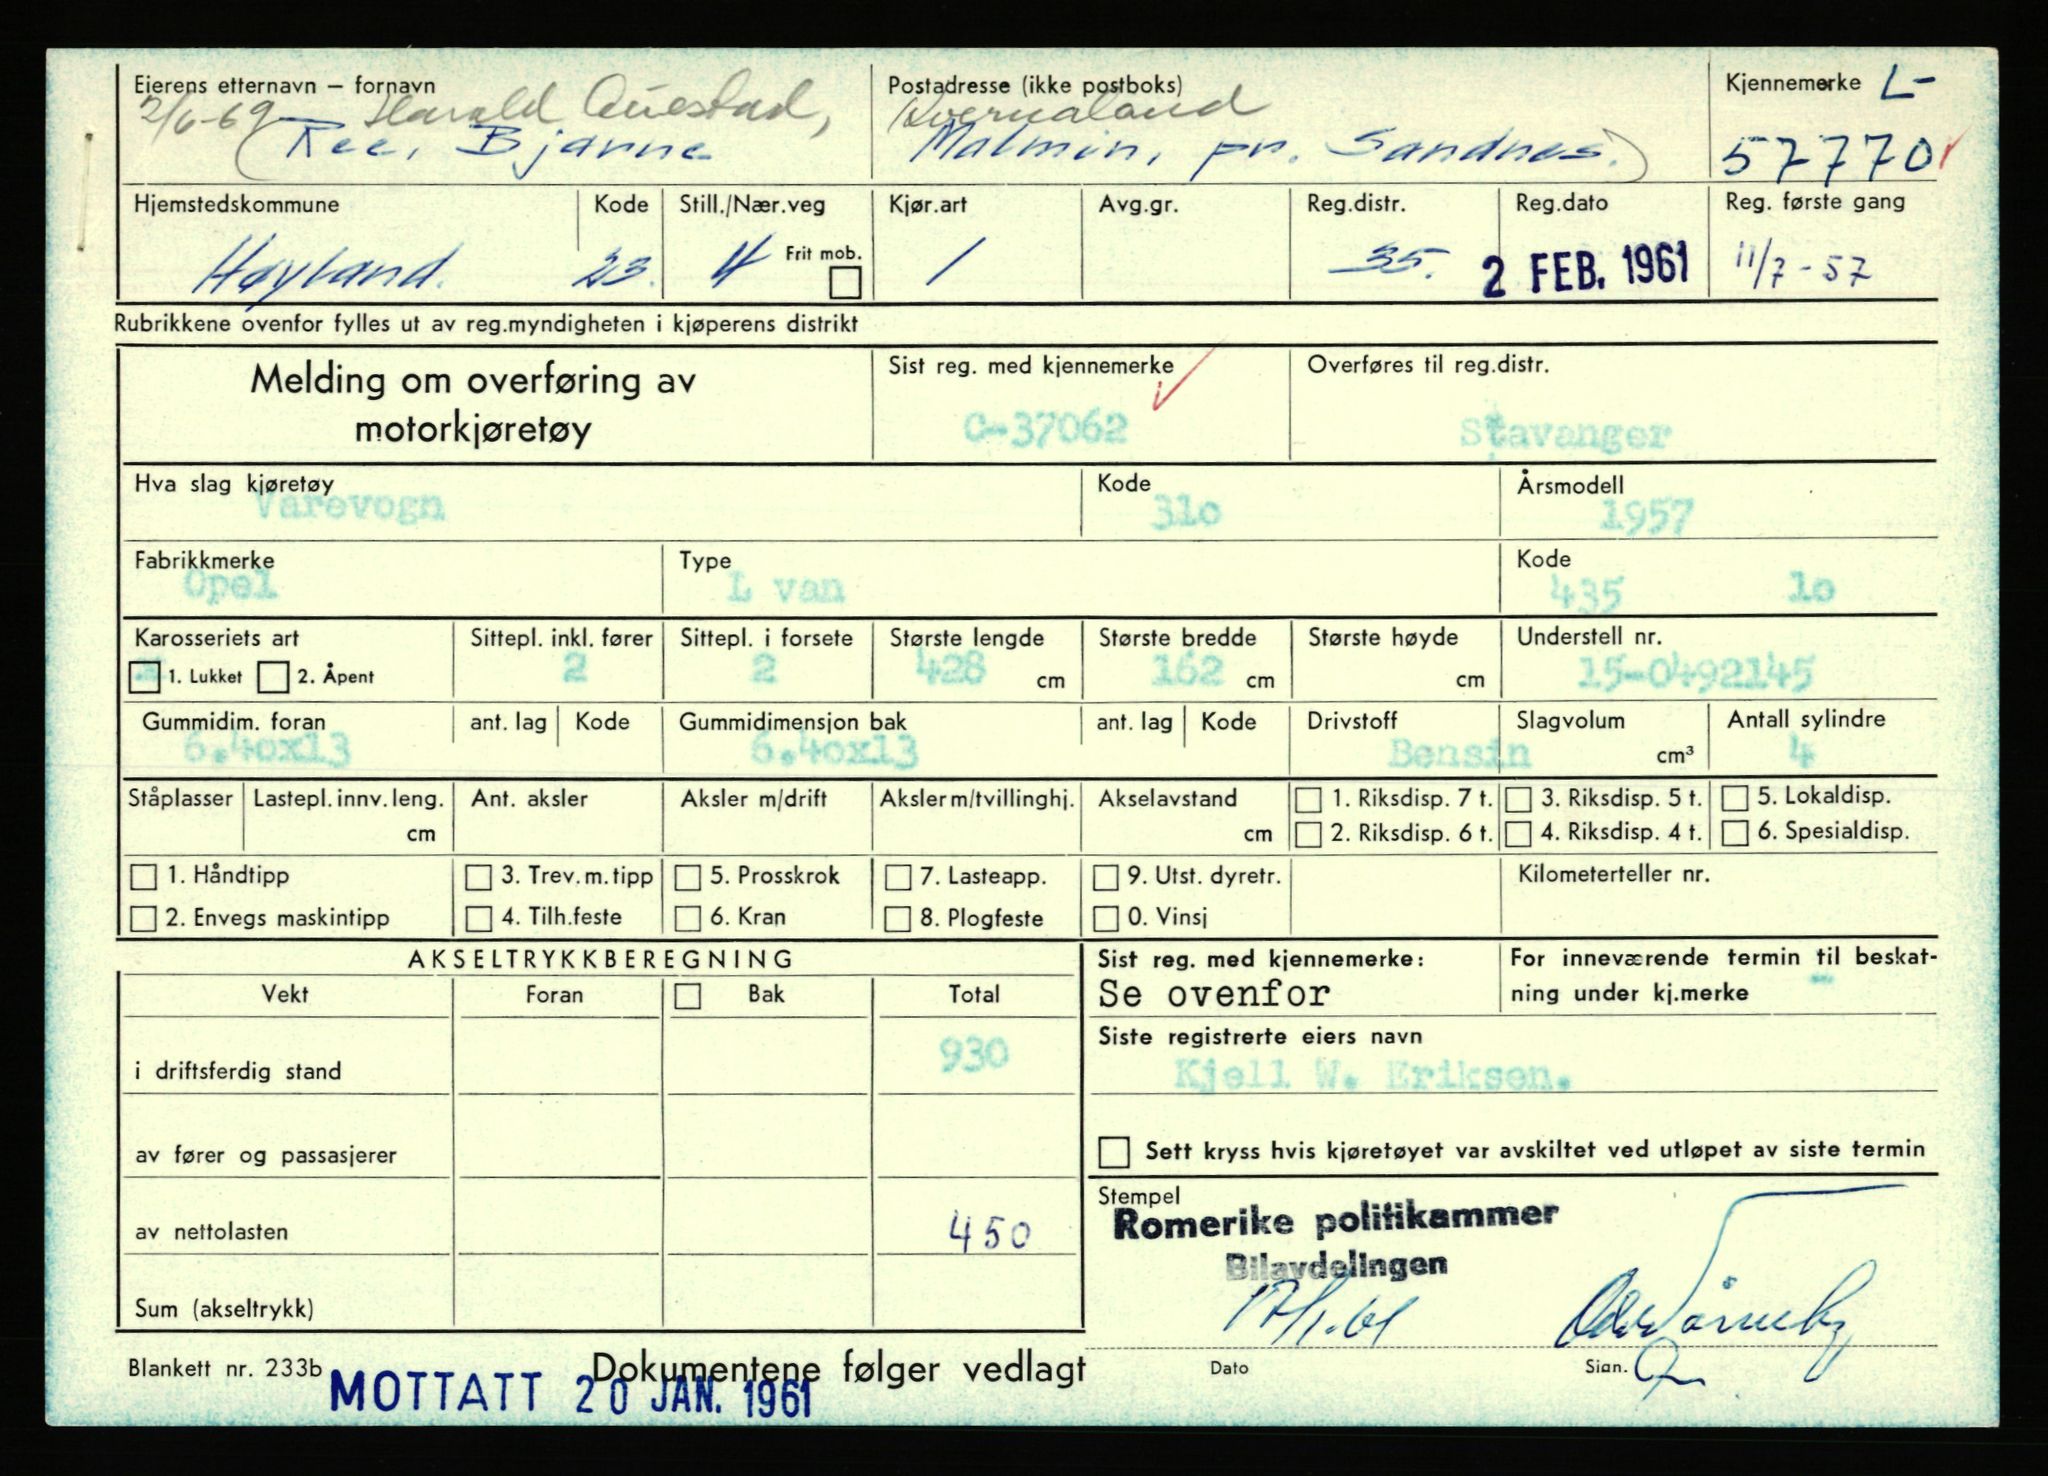 Eierens etternavn – fornavn Postadresse (ikke postboks) Kjennemerke L-
2/6-69 Harald Auestad, Kvernaland
(Ree, Bjarne Malmin, pr. Sandnes.) 57770
Hjemstedskommune Kode Still./Nær.veg Kjør.art Avg.gr. Reg.distr. Reg.dato Reg. første gang
Høyland. 23. 4 Frit mob. 1 35. 2 FEB. 1961 11/7-57
Rubrikkene ovenfor fylles ut av reg.myndigheten i kjøperens distrikt
Melding om overføring av Sist reg. med kjennemerke Overføres til reg.distr.
motorkjøretøy C-37062 Stavanger
Hva slag kjøretøy Kode Årsmodell
Varevogn 31o 1957
Fabrikkmerke Type Kode
Opel L van 435 1o
Karosseriets art Sittepl. inkl. fører Sittepl. i forsete Største lengde Største bredde Største høyde Understell nr.
1. Lukket 2. Åpent 2 2 428 cm 162 cm cm 15-0492145
Gummidim. foran ant. lag Kode Gummidimensjon bak ant. lag Kode Drivstoff Slagvolum Antall sylindre
6.4ox13 6.4ox13 Bensin cm³ 4
Ståplasser Lastepl. innv. leng. Ant. aksler Aksler m/drift Aksler m/tvillinghj. Akselavstand 1. Riksdisp. 7 t. 3. Riksdisp. 5 t. 5. Lokaldisp.
cm cm 2. Riksdisp. 6 t. 4. Riksdisp. 4 t. 6. Spesialdisp.
1. Håndtipp 3. Trev. m. tipp 5. Prosskrok 7. Lasteapp. 9. Utst. dyretr. Kilometerteller nr.
2. Envegs maskintipp 4. Tilh.feste 6. Kran 8. Plogfeste 0. Vinsj
AKSELTRYKKBEREGNING Sist reg. med kjennemerke: For inneværende termin til beskat-
Vekt Foran Bak Total Se ovenfor ning under kj.merke -
Siste registrerte eiers navn
i driftsferdig stand 930 Kjell W. Eriksen.
av fører og passasjerer Sett kryss hvis kjøretøyet var avskiltet ved utløpet av siste termin
Stempel
av nettolasten 450 Romerike politikammer
Bilavdelingen
Sum (akseltrykk) 17/1.61
Blankett nr. 233b Dokumentene følger vedlagt Dato Sign.
MOTTATT 20 JAN. 1961